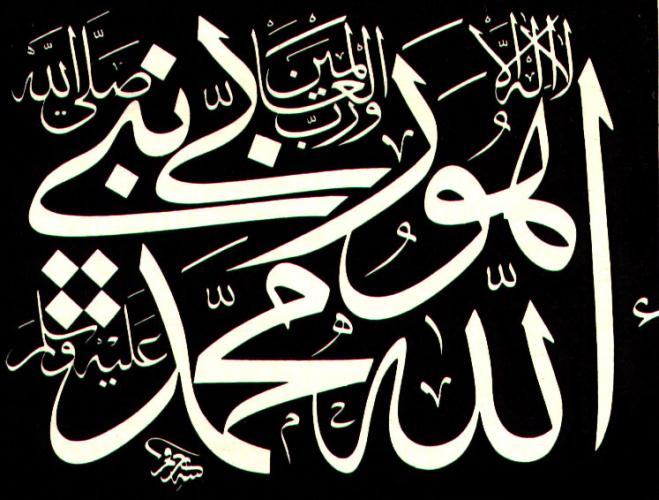 لا اله إلا
ورب العالمين
صلى الله
هو ربي نبي
الله محمد
عليه وسلم